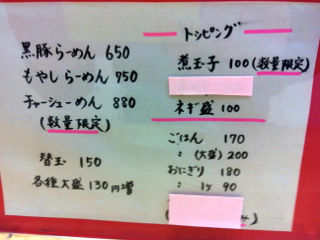 黒豚らーめん 650
もやしらーめん 750
チャーシューめん 880
(数量限定)
替玉 150
各種大盛 130円増
トッピング
煮玉子 100 (数量限定)
ネギ盛 100
ごはん 170
〃 (大盛) 200
おにぎり 180
〃 1ケ 90